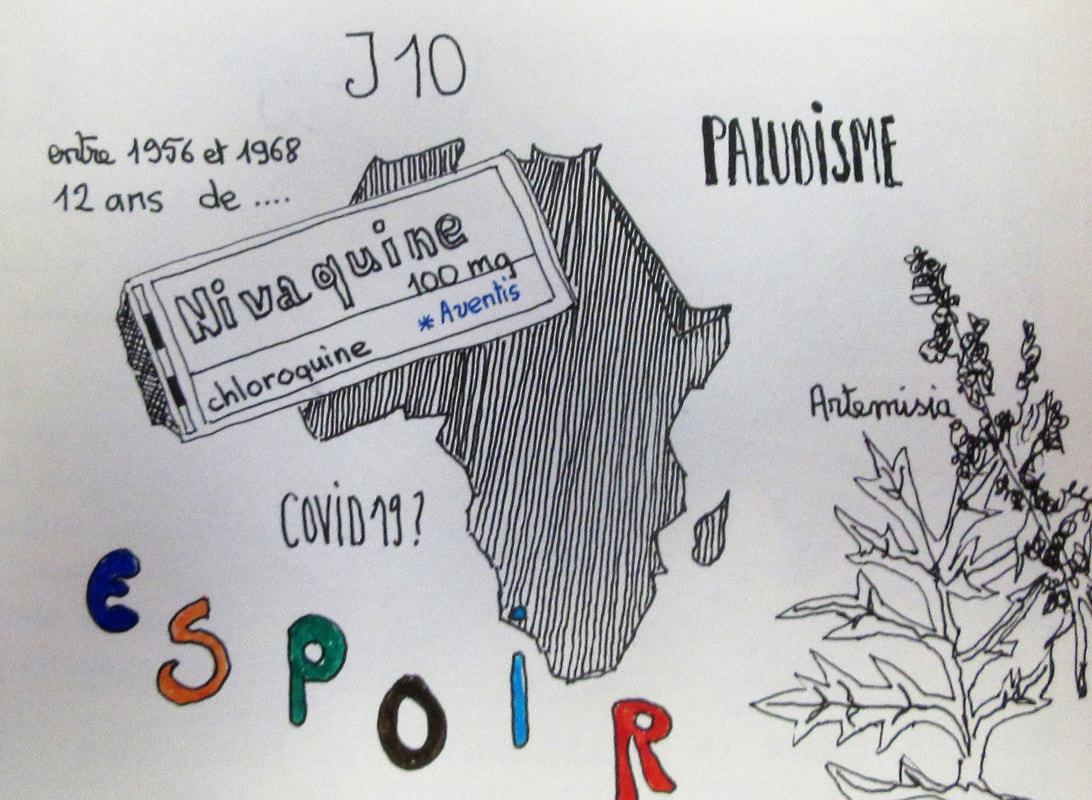 J10
entre 1956 et 1968
12 ans de ....
PALUDISME
Nivaquine
100 mg
*Aventis
chloroquine
Artemisia
COVID19?
eSPOIR